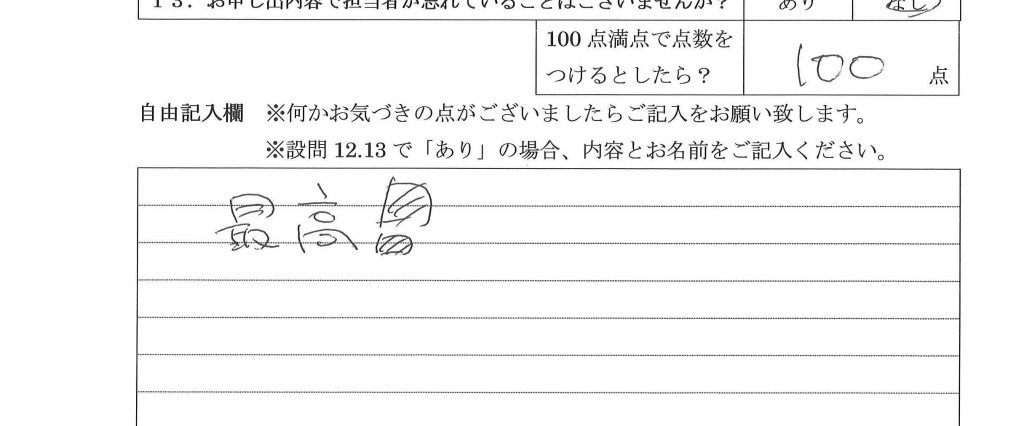 13．お申し出内容で担当者が忘れていることはございませんか？ あり なし
100点満点で点数を
つけるとしたら？ 100 点
自由記入欄 ※何かお気づきの点がございましたらご記入をお願い致します。
※設問12.13で「あり」の場合、内容とお名前をご記入ください。
最高